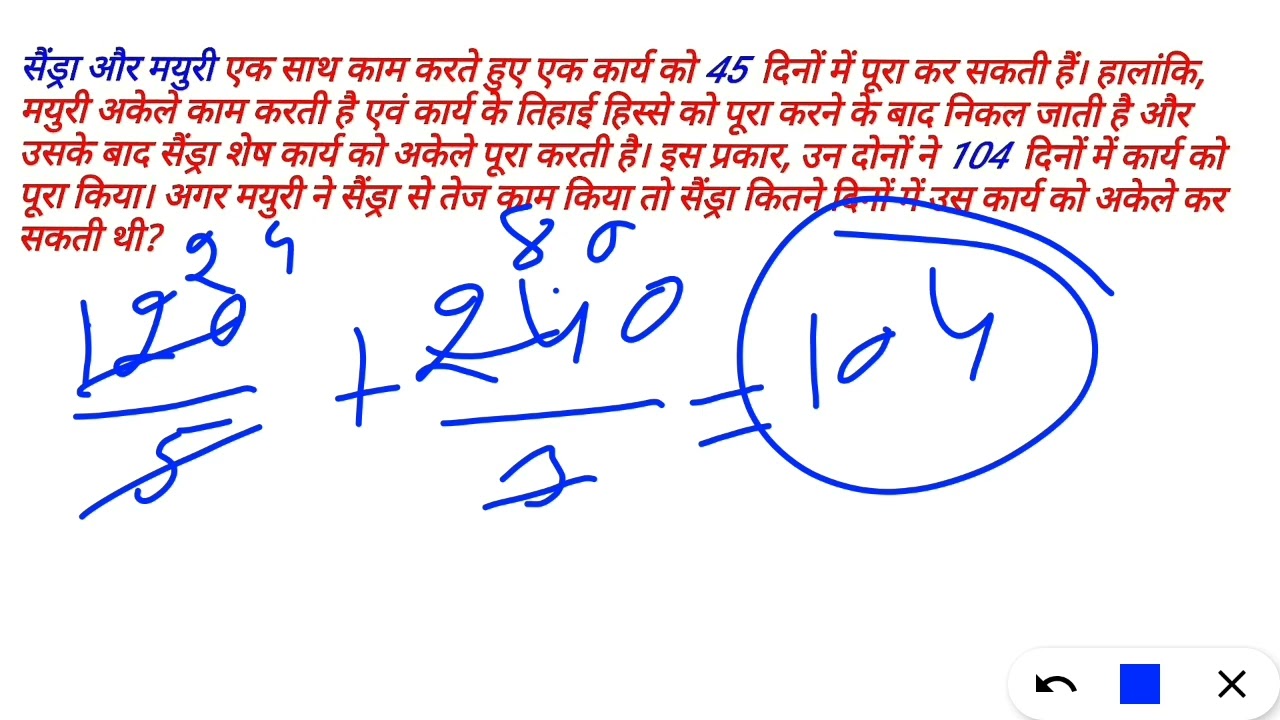 सैंड्रा और मयुरी एक साथ काम करते हुए एक कार्य को 45 दिनों में पूरा कर सकती हैं। हालांकि,
मयुरी अकेले काम करती है एवं कार्य के तिहाई हिस्से को पूरा करने के बाद निकल जाती है और
उसके बाद सैंड्रा शेष कार्य को अकेले पूरा करती है। इस प्रकार, उन दोनों ने 104 दिनों में कार्य को
पूरा किया। अगर मयुरी ने सैंड्रा से तेज काम किया तो सैंड्रा कितने दिनों में उस कार्य को अकेले कर
सकती थी?
24 80
120 + 240 = 104
5 3